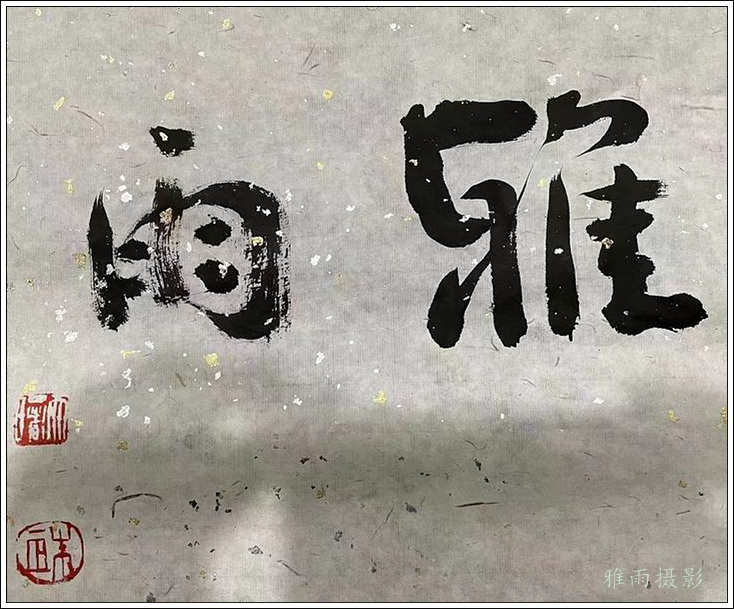 雅雨
雅雨摄影